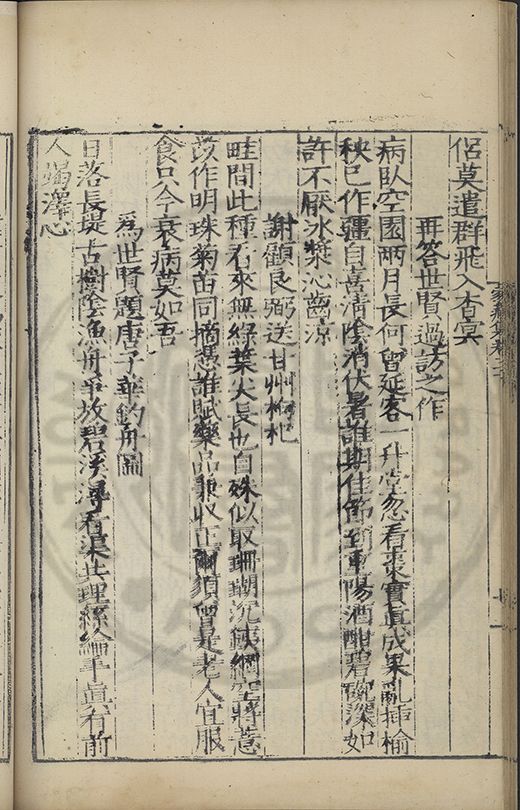 侶莫遣群飛入杳冥
再答世賢過訪之作
病臥空園兩月長何曾延客一升堂忽看棗實真成果亂插榆
秧已作疆自喜清陰消伏暑誰期佳節到重陽酒酣碧甕深如
許不厭冰漿沁齒涼
謝顧良弼送甘州枸杞
畦間此種看來無綠葉尖長也自殊似取珊瑚沉鐵網空將薏
苡作明珠菊苗同摘憑誰賦藥品兼收正爾須曾是老人宜服
食只今衰病莫如吾
為世賢題唐子華釣舟圖
日落長堤古樹陰漁舟爭放碧溪潯看渠共理絲綸半直看前
人竭澤心